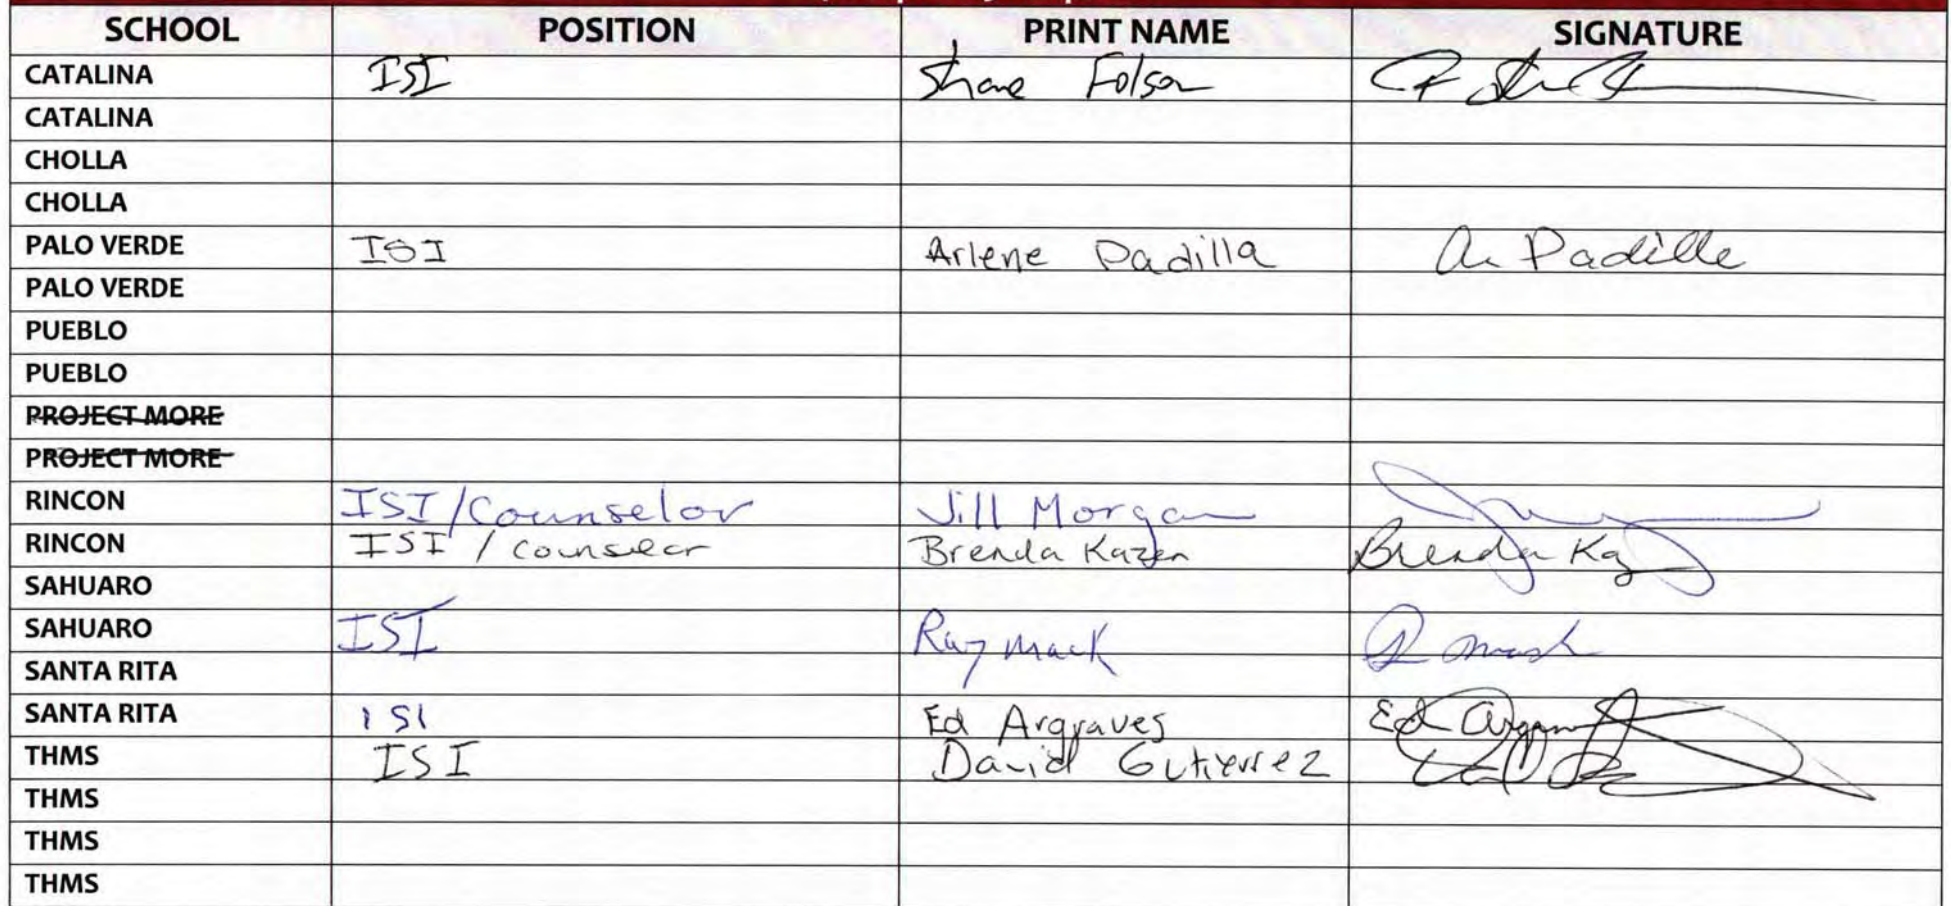 SCHOOL POSITION PRINT NAME SIGNATURE
CATALINA ISI Shane Folsom
CATALINA
CHOLLA
CHOLLA
PALO VERDE ISI Arlene Padilla A. Padilla
PALO VERDE
PUEBLO
PUEBLO
PROJECT MORE
PROJECT MORE
RINCON ISI/Counselor Jill Morgan
RINCON ISI / Counselor Brenda Kazen Brenda
SAHUARO
SAHUARO ISI Ray Mack R Mack
SANTA RITA
SANTA RITA ISI Ed Argraves Ed Argraves
THMS ISI David Gutierrez
THMS
THMS
THMS